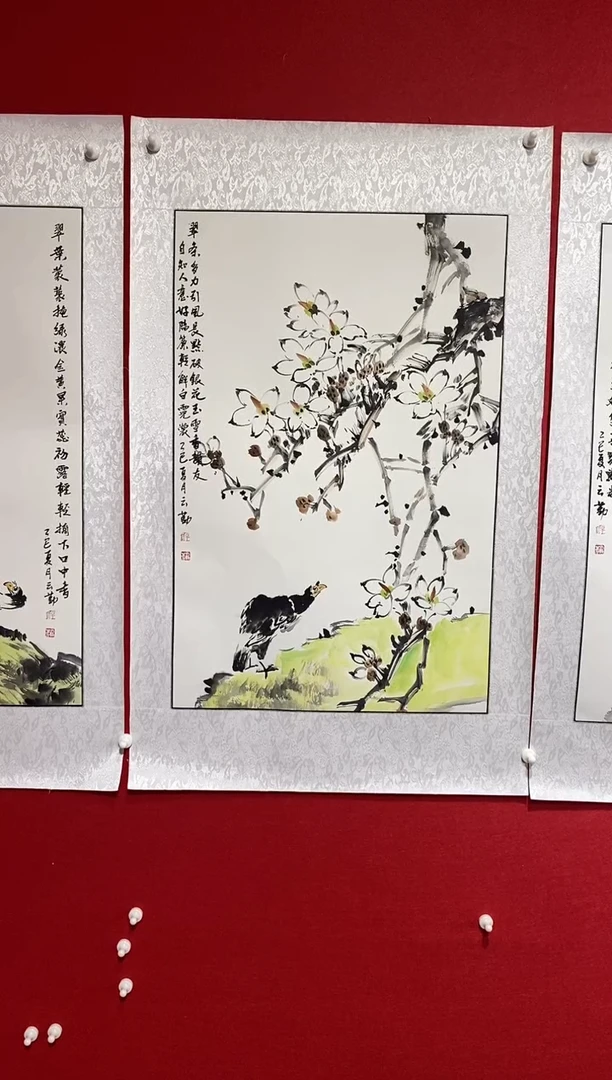 翠葉蒙蒙艳绿浓金黄果實蕊初露輕輕摘下口中香
乙巳夏月云勤
翠条多力引風長點破银花玉雪香韻友
自知人意好隔簾輕解白霓裳乙巳夏月云勤
乙巳夏月云勤